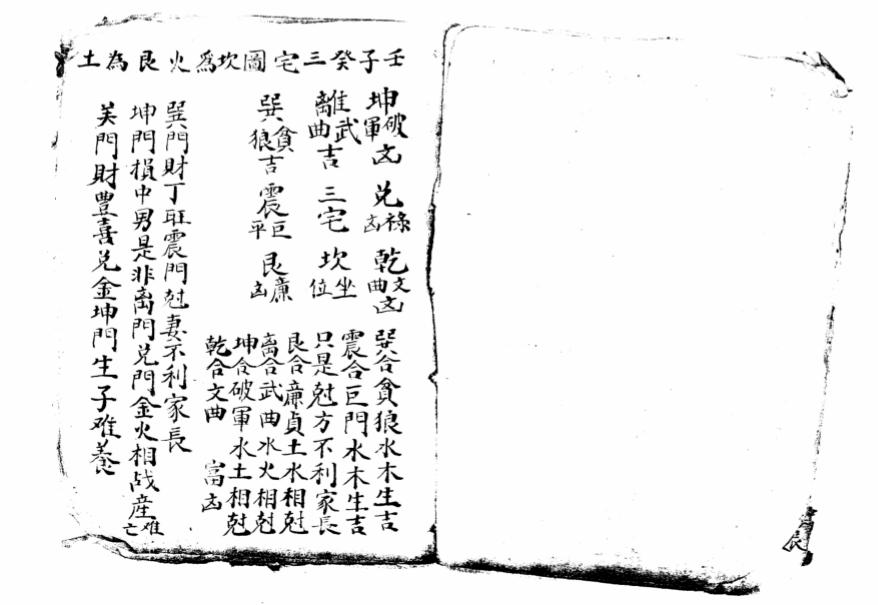 壬子癸三宅圖坎為火艮為土
坤破軍凶 兌祿凶 乾文曲凶
離武曲吉 三宅 坎坐位
巽貪狼吉 震巨平 艮廉凶
巽合貪狼水木生吉
震合巨門水木生吉
只是尅方不利家長
艮合廉貞土水相尅
离合武曲水火相尅
坤合破軍水土相尅
乾合文曲 富凶
巽門財丁旺震門尅妻不利家長
坤門損中男是非离門兌門金火相战産难亡
美門財豊喜兌金坤門生子难養